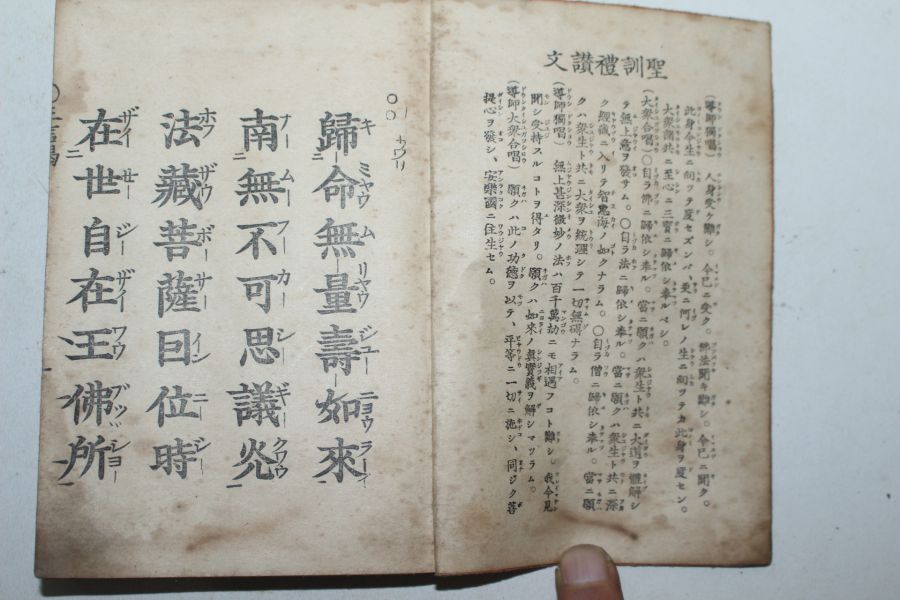 聖訓禮讚文
(導師獨唱) 人身受ケ難シ。今已ニ受ク。佛法聞キ難シ。今已ニ聞ク。
此身今生ニ向ツテ度セズンバ更ニ何レノ生ニ向ツテカ此身ヲ度セン。
大衆諸共ニ至心ニ三寶ニ歸依シ奉ルベシ。
(大衆合唱) 〇自ラ佛ニ歸依シ奉ル。當ニ願クハ衆生ト共ニ大道ヲ體解シ
テ無上意ヲ發サム。〇自ラ法ニ歸依シ奉ル。當ニ願クハ衆生ト共ニ深
ク經藏ニ入リテ智慧海ノ如クナラム。〇自ラ僧ニ歸依シ奉ル。當ニ願
クハ衆生ト共ニ大衆ヲ統理シテ一切無碍ナラム。
(導師獨唱) 無上甚深微妙ノ法ハ百千萬劫ニモ相遇フコト難シ。我今見
聞シ受持スルコトヲ得タリ。願クハ如來ノ眞實義ヲ解シマツラム。
(導師大衆合唱) 願クハ此ノ功德ヲ以テ、平等ニ一切ニ施シ、同ジク菩
提心ヲ發シ、安樂國ニ往生セム。
歸命無量壽如來
キミヤウムリヤウジユーニヨウラーイ
南無不可思議光
ナームーフーカーシーギークワウ
法藏菩薩因位時
ホフザウボーサーインニージー
在世自在王佛所
ザイセージーザイワウブツシヨー